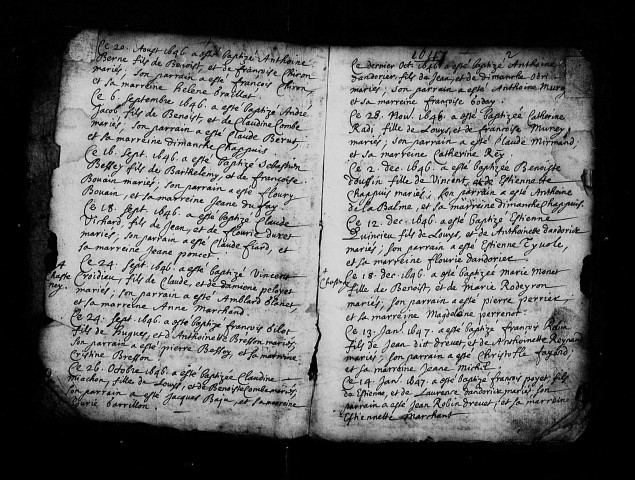 Ce 20. Aoust 1646. a esté baptizé Anthoine
Berne fils de Benoist, et de françoise Chiron
mariés; son parrain a esté françois Chiron,
et sa marreine helene
Ce 6. septembre 1646. a esté baptizé André
Jacob, fils de Benoist, et de Claudine Combe
mariés; son parrain a esté Claude Berut;
et sa marreine dimanche Chappuis.
Ce 16. Sept. 1646. a esté baptizé Sebastien
Bessey fils de Barthelemy, et de francoise
Bouain mariés, son parrain a esté fleury
Bouain, et sa marreine Jeane du fay
Ce 18. Sept. 1646. a esté baptizé Claude
Vichard, fils de Jean, et de fleurie duret
mariés, son parrain a esté Claude fiard, et
sa marreine Jeane poncet.
Ce 24. Sept. 1646. a esté baptizé Vincent
Croidieu, fils de Claude, et de damiene peloret
mariés, son parrain a esté Amblard
et sa marreine Anne Marchand
Ce 24. Sept. 1646. a esté baptizé françois bilet
fils de hugues, et d'Anthoinette Bresson mariés,
son parrain a esté pierre Bessey, et sa marreine
Cristine Bresson.
Ce 26. Octobre 1646. a esté baptizé Claudine
miachon, fille de Louys, et de Benoiste Combe mariés,
son parrain a esté Jaques Baju, et sa marreine
barrillon.
Ce dernier Oct. 1646. a esté baptizé Anthoine
dandorier, fils de Jean, et de dimanche
mariés; son parrain a esté Anthoine Murey
et sa marreine françoise boday.
Ce 28. Nov. 1646. a esté baptizée Catherine
Radi, fille de Louys, et de francoise Murey
mariés; son parrain a esté Claude Mirmand;
et sa marreine Catherine Rey
Ce 2. dec. 1646. a esté baptizée Benoiste
fille de Vincent, et de Estienette
Chappuis mariés; son parrain a esté Anthoine
de la Balme, et sa marreine dimanche Chappuis.
Ce 12. dec. 1646. a esté baptizé Estienne
Quinrieu, fils de Louys, et de Anthoinette dandorier
mariés; son parrain a esté Estienne Tyvole,
et sa marreine flourie dandorier
Ce 18. dec. 1646. a esté baptizée Marie Monet
fille de Benoist, et de Marie Rodeyron
mariés, son parrain a esté pierre perrier,
et sa marreine Magdelene perrenot.
Ce 13. Jan. 1647. a esté baptizé françois Robin
fils de Jean dit drevet, et de Anthoinette Reynard
mariés; son parrain a esté Christofle fayard,
et sa marreine Jeane Michel
Ce 14. Jan. 1647. a esté baptizé françois payet, fils
de Estienne, et de Laurence dandorier mariés, son
parrain a esté Jean Robin drevet; et sa marreine
Estiennette Marchant